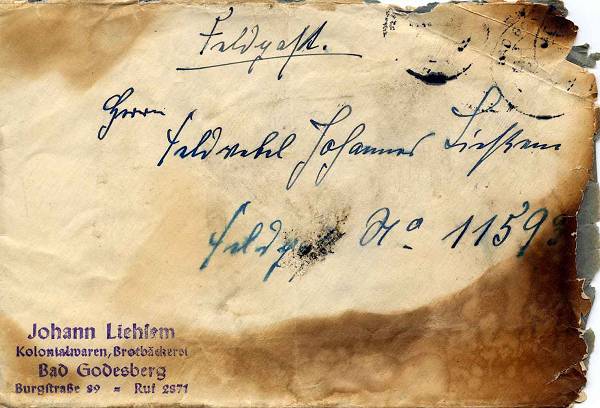 Feldpost.
Herrn
Feldwebel Johannes Liehsem
Feldp No 1159
Johann Liehsem
Kolonialwaren, Brotbäckerei
Bad Godesberg
Burgstraße 89 = Ruf 2871